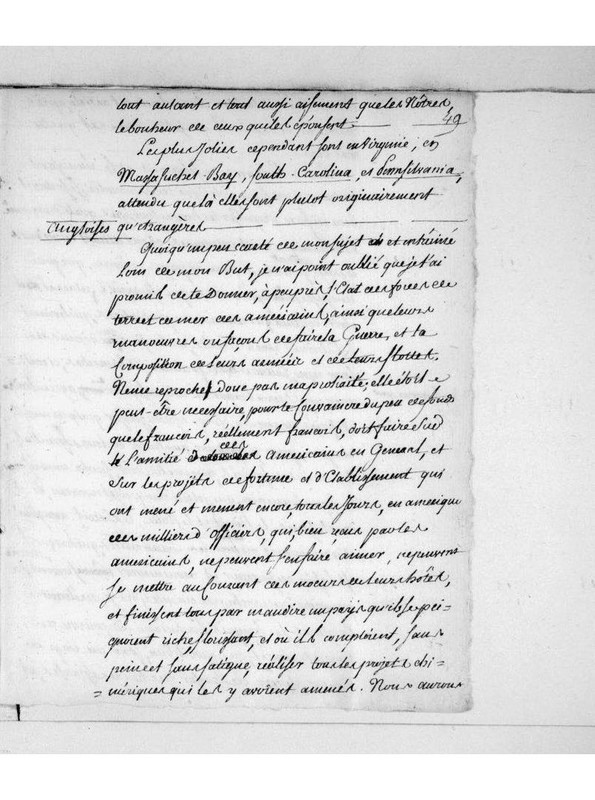 tout autant et tout aussi aisement que les Nôtres,
49
le bonheur de ceux qui les épousent.
Les plus Jolies cependant sont en Virginie, en
Massachuchet-Bay, South-Carolina, et Pennsilvania,
attendu que là elles sont plutot originairement
Angloises qu'étrangères
Quoiqu'un peu écarté de mon sujet et entrainé
Loin de mon But, je n'ai point oublié que je t'ai
promis de te Donner, à peu près, l'Etat des forces de
terre et de mer des américains, ainsi que leurs
manoeuvres ou façons de faire la Guerre, et la
Composition de leurs armées et de leurs flottes.
Ne me reproches donc pas ma prolixité; elle étoit
peut-être necessaire, pour te Convaincre du peu de fonds
que le francois, réellement francois, doit faire sur
L'amitié des Americains en General, et
Sur les projets de fortune et d'Etablissement qui
ont mené et menent encore, tous les Jours, en amerique
des milliers d'officiers, qui, bien reçus par les
americains, ne peuvent s'en faire aimer, ne peuvent
se mettre au Courant des moeurs de leurs hôtes,
et finissent tous par maudire un pays qu'ils se pei=
gnoient riche, florissant, et où ils comptoient, sans
peine et sans fatigue, réaliser tous les projets chi=
=mériques qui les y avoient amenés. Nous aurons